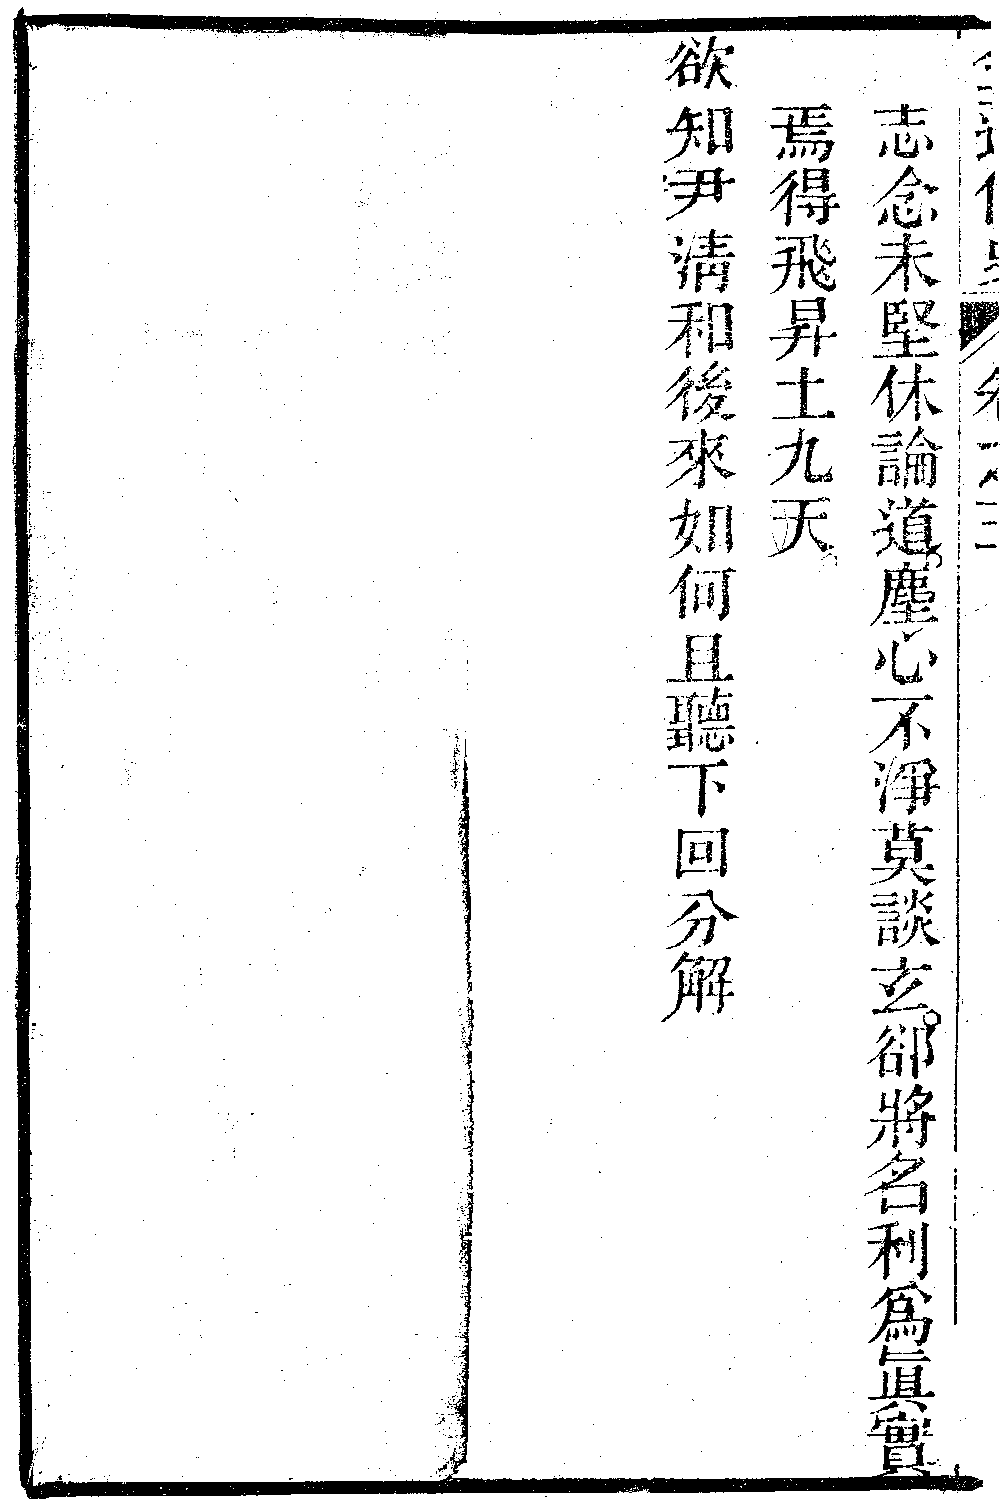 志念未堅休論道。塵心不淨莫談玄。郤將名利爲眞實
焉得飛昇土九天。
欲知尹淸和後來如何且聽下回分解